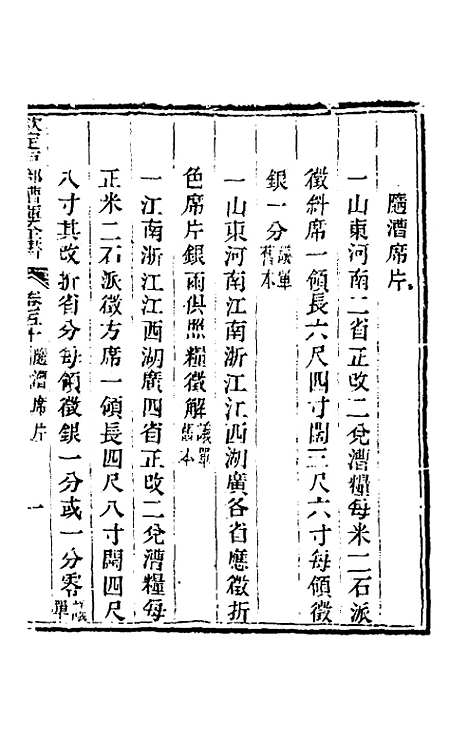 隨漕席片
一山東河南二省正改二兌漕糧每米二石派
徵斜席一領長六尺四寸闊三尺六寸每領徵
銀一分議單舊本
一山東河南江南浙江江西湖廣各省應徵折
色席片銀兩俱照糧徵解議單舊本
一江南浙江江西湖廣四省正改二兌漕糧每
正米二石派徵方席一領長四尺八寸闊四尺
八寸其改折省分每領徵銀一分或一分零議單
欽定戶部漕運全書 卷五十 隨漕席片 一